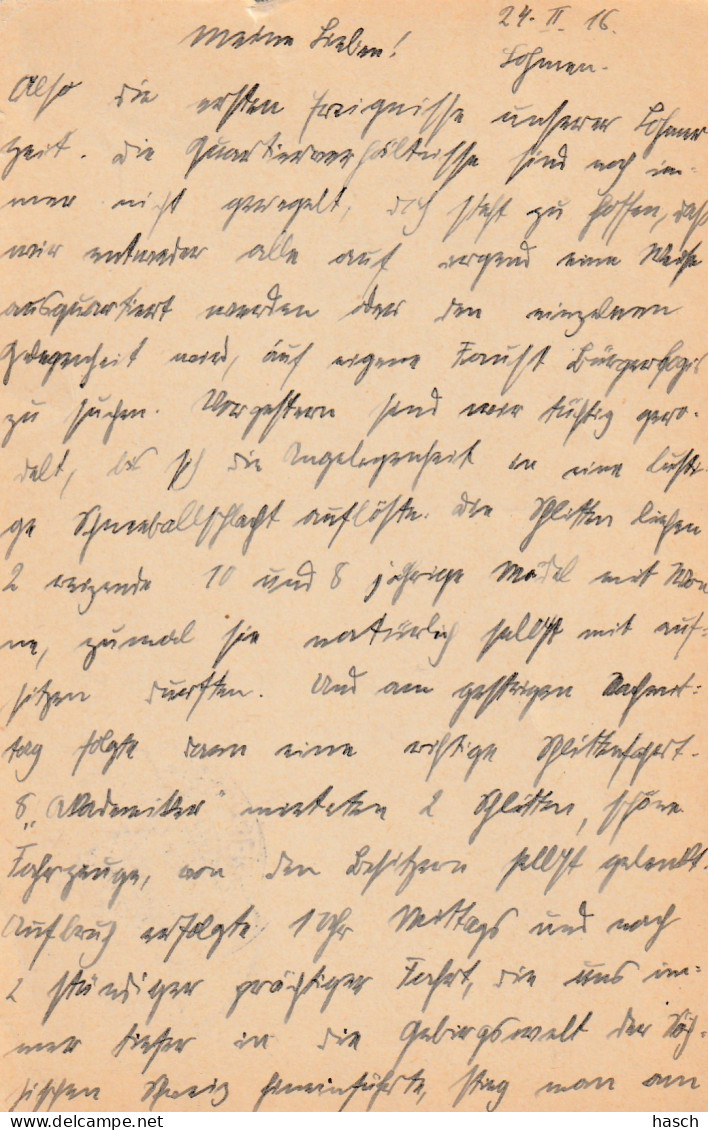 24. II. 16.
Meine Lieben!
Lohmen.
Also die ersten Ereignisse unserer Lohmer
Zeit. Die Quartierverhältnisse sind noch im-
mer nicht geregelt, doch steht zu hoffen, daß
wir entweder alle auf irgend eine Weise
ausquartiert werden oder den einzelnen
Gelegenheit wird, auf eigene Faust Bürgerlogis
zu suchen. Vorgestern sind wir tüchtig gero-
delt, bis sich die Angelegenheit in eine lusti-
ge Schneeballschlacht auflöste. Die Schlitten liehen
2 reizende 10 und 8 jährige Mädel mit Won
ne, zumal sie natürlich selbst mit auf-
sitzen durften. Und am gestrigen Nachmit-
tag folgte dann eine richtige Schlittenfahrt.
8 „Akademiker" mieteten 2 Schlitten, schöne
Fahrzeuge, von den Besitzern selbst gelenkt.
Aufbruch erfolgte 1 Uhr Mittags und nach
2 stündiger prächtiger Fahrt, die uns im-
mer tiefer in die Gebirgswelt der Säch-
sischen Schweiz hineinführte, stieg man am
hasch